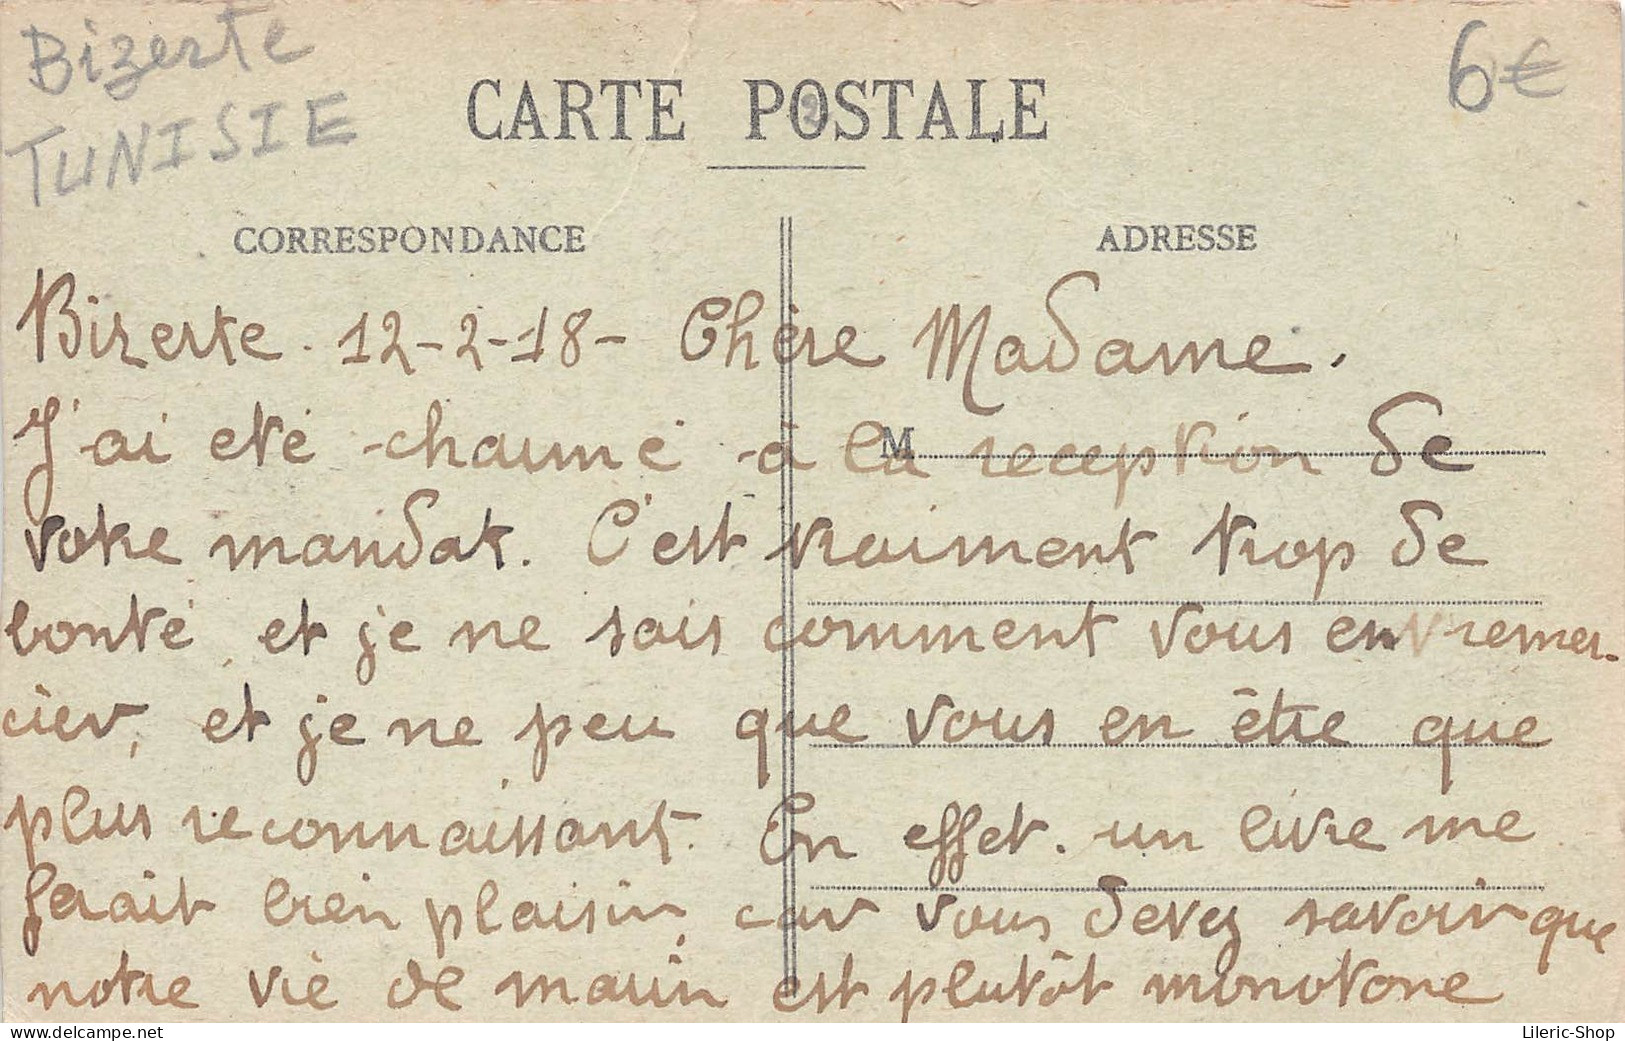 Bizerte
TUNISIE
6€
CARTE POSTALE
2
CORRESPONDANCE
ADRESSE
M
Bizerte. 12-2-18- Chère Madame.
J'ai eté chaumé à la reception de
votre mandat. C'est vraiment trop de
bonté, et je ne sais comment vous en remer-
cier, et je ne peu que vous en être que
plus reconnaissant. En effet. un livre me
ferait bien plaisir, car vous devez savoir que
notre vie de marin est plutôt monotone
Lileric-Shop